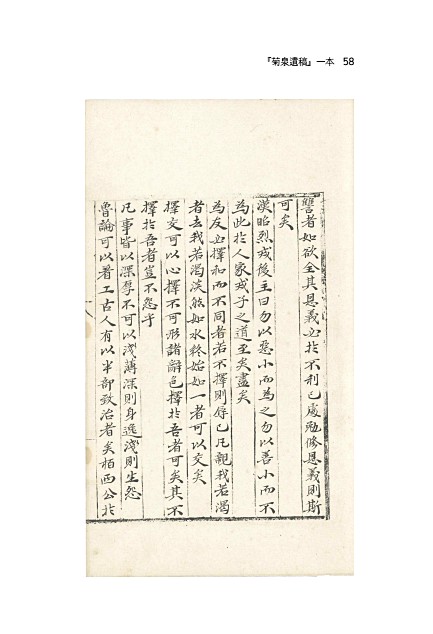 『菊泉遺稿』一本 58
讐者如欲全其恩義必於不利己處勉修恩義則斯
可矣
漢昭烈戒後主曰勿以惡小而為之勿以善小而不
為此於人家戒子之道至矣盡矣
為友必擇和而不同者若不擇則辱己凡親我若渴
者去我若渴淡然如水終始如一者可以交矣
擇交可以心擇不可形諸辭色擇於吾者可矣其不
擇於吾者豈不怨乎
凡事皆以深厚不可以淺薄深則身逸淺則生怨
魯論可以着工古人有以半部致治者矣栢西公於